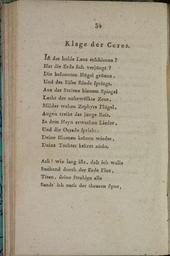 54
Klage der Ceres.
Ist der holde Lenz erschienen?
Hat die Erde sich verjüngt?
Die besonnten Hügel grünen,
Und des Eises Rinde springt.
Aus der Ströme blauem Spiegel
Lacht der unbewölkte Zeus,
Milder wehen Zephyrs Flügel,
Augen treibt das junge Reis.
In dem Hayn erwachen Lieder,
Und die Oreade spricht:
Deine Blumen kehren wieder,
Deine Tochter kehret nicht.
Ach! wie lang ists, daß ich walle
Suchend durch der Erde Flur,
Titan, deine Strahlen alle
Sandt' ich nach der theuren Spur,